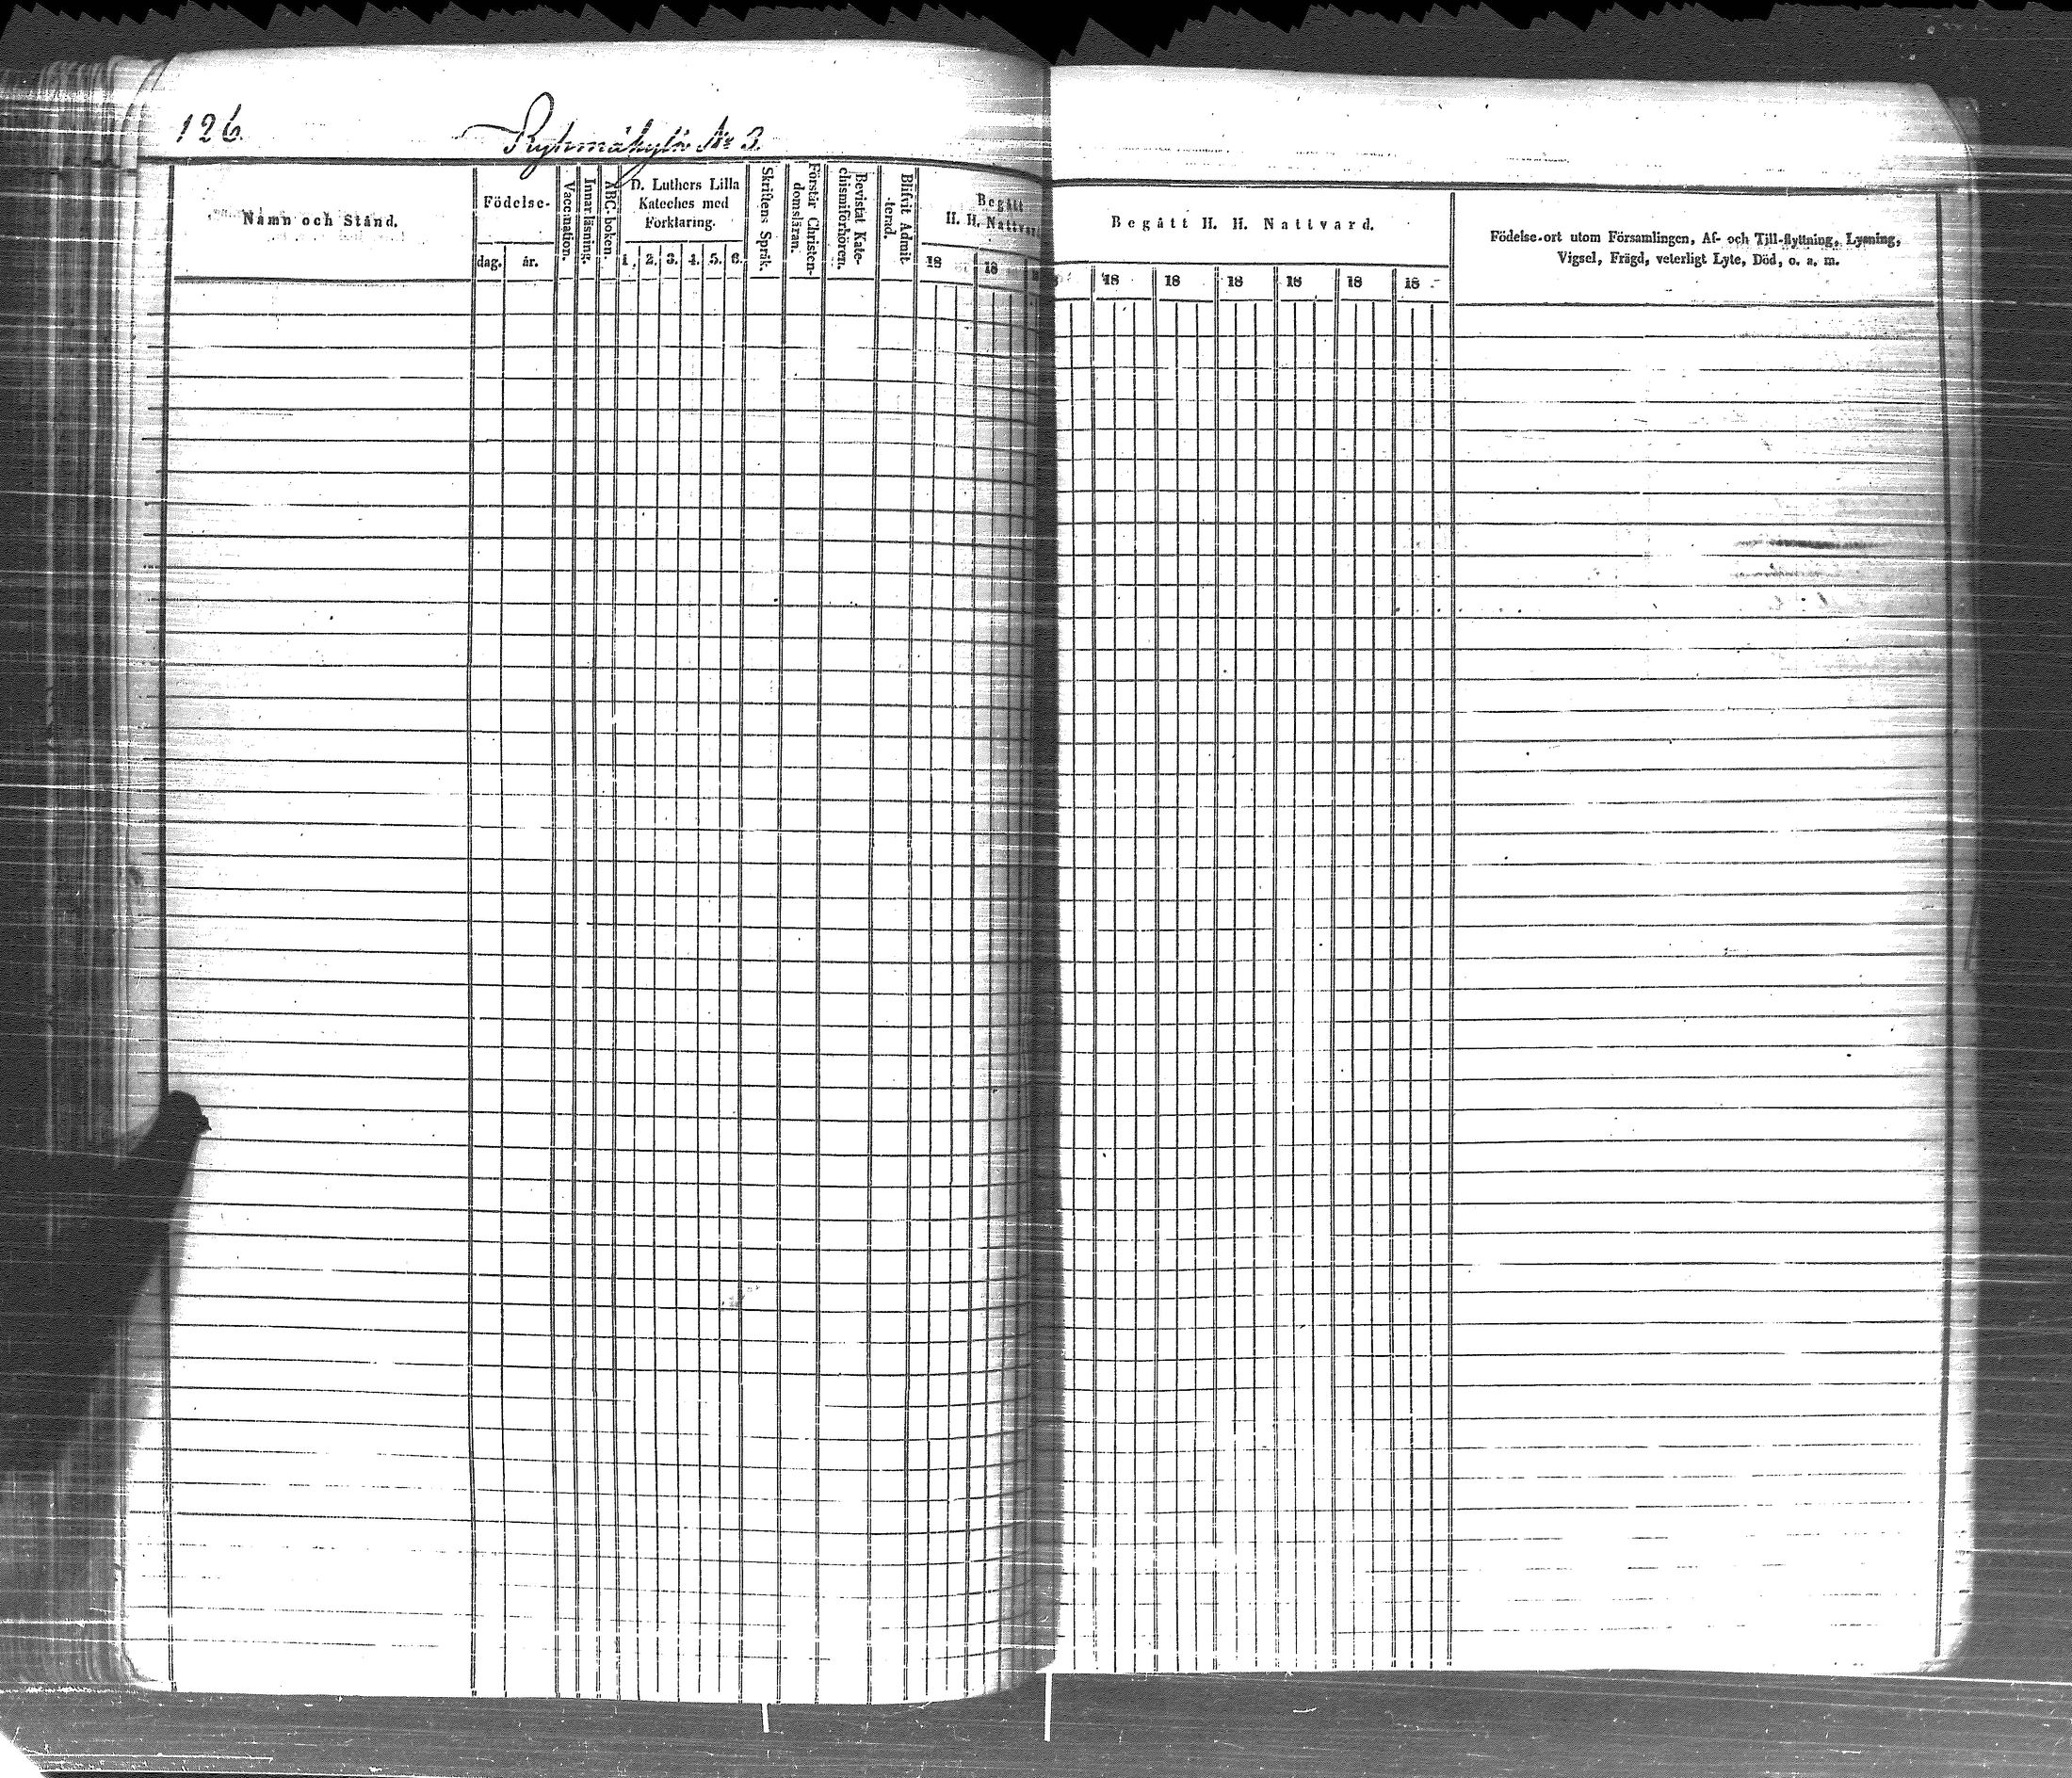 126.
Ryhmäkylä No 3.
Namn och Stånd.
Födelse-
dag.
år.
Vaccination.
Innanläsning.
ABC-boken.
D. Luthers Lilla
Kateches med
Förklaring.
1. 2. 3. 4. 5. 6.
Skriftens Språk.
Förstår Christen-
domsläran.
Bevistat Kate-
chismiförhören.
Blifvit Admit-
terad.
Begått
H. H. Nattvard
18 18
Begått H. H. Nattvard.
18 18 18 18 18 18
Födelse-ort utom Församlingen, Af- och Till-flyttning, Lysning,
Vigsel, Frägd, veterligt Lyte, Död, o. s. m.